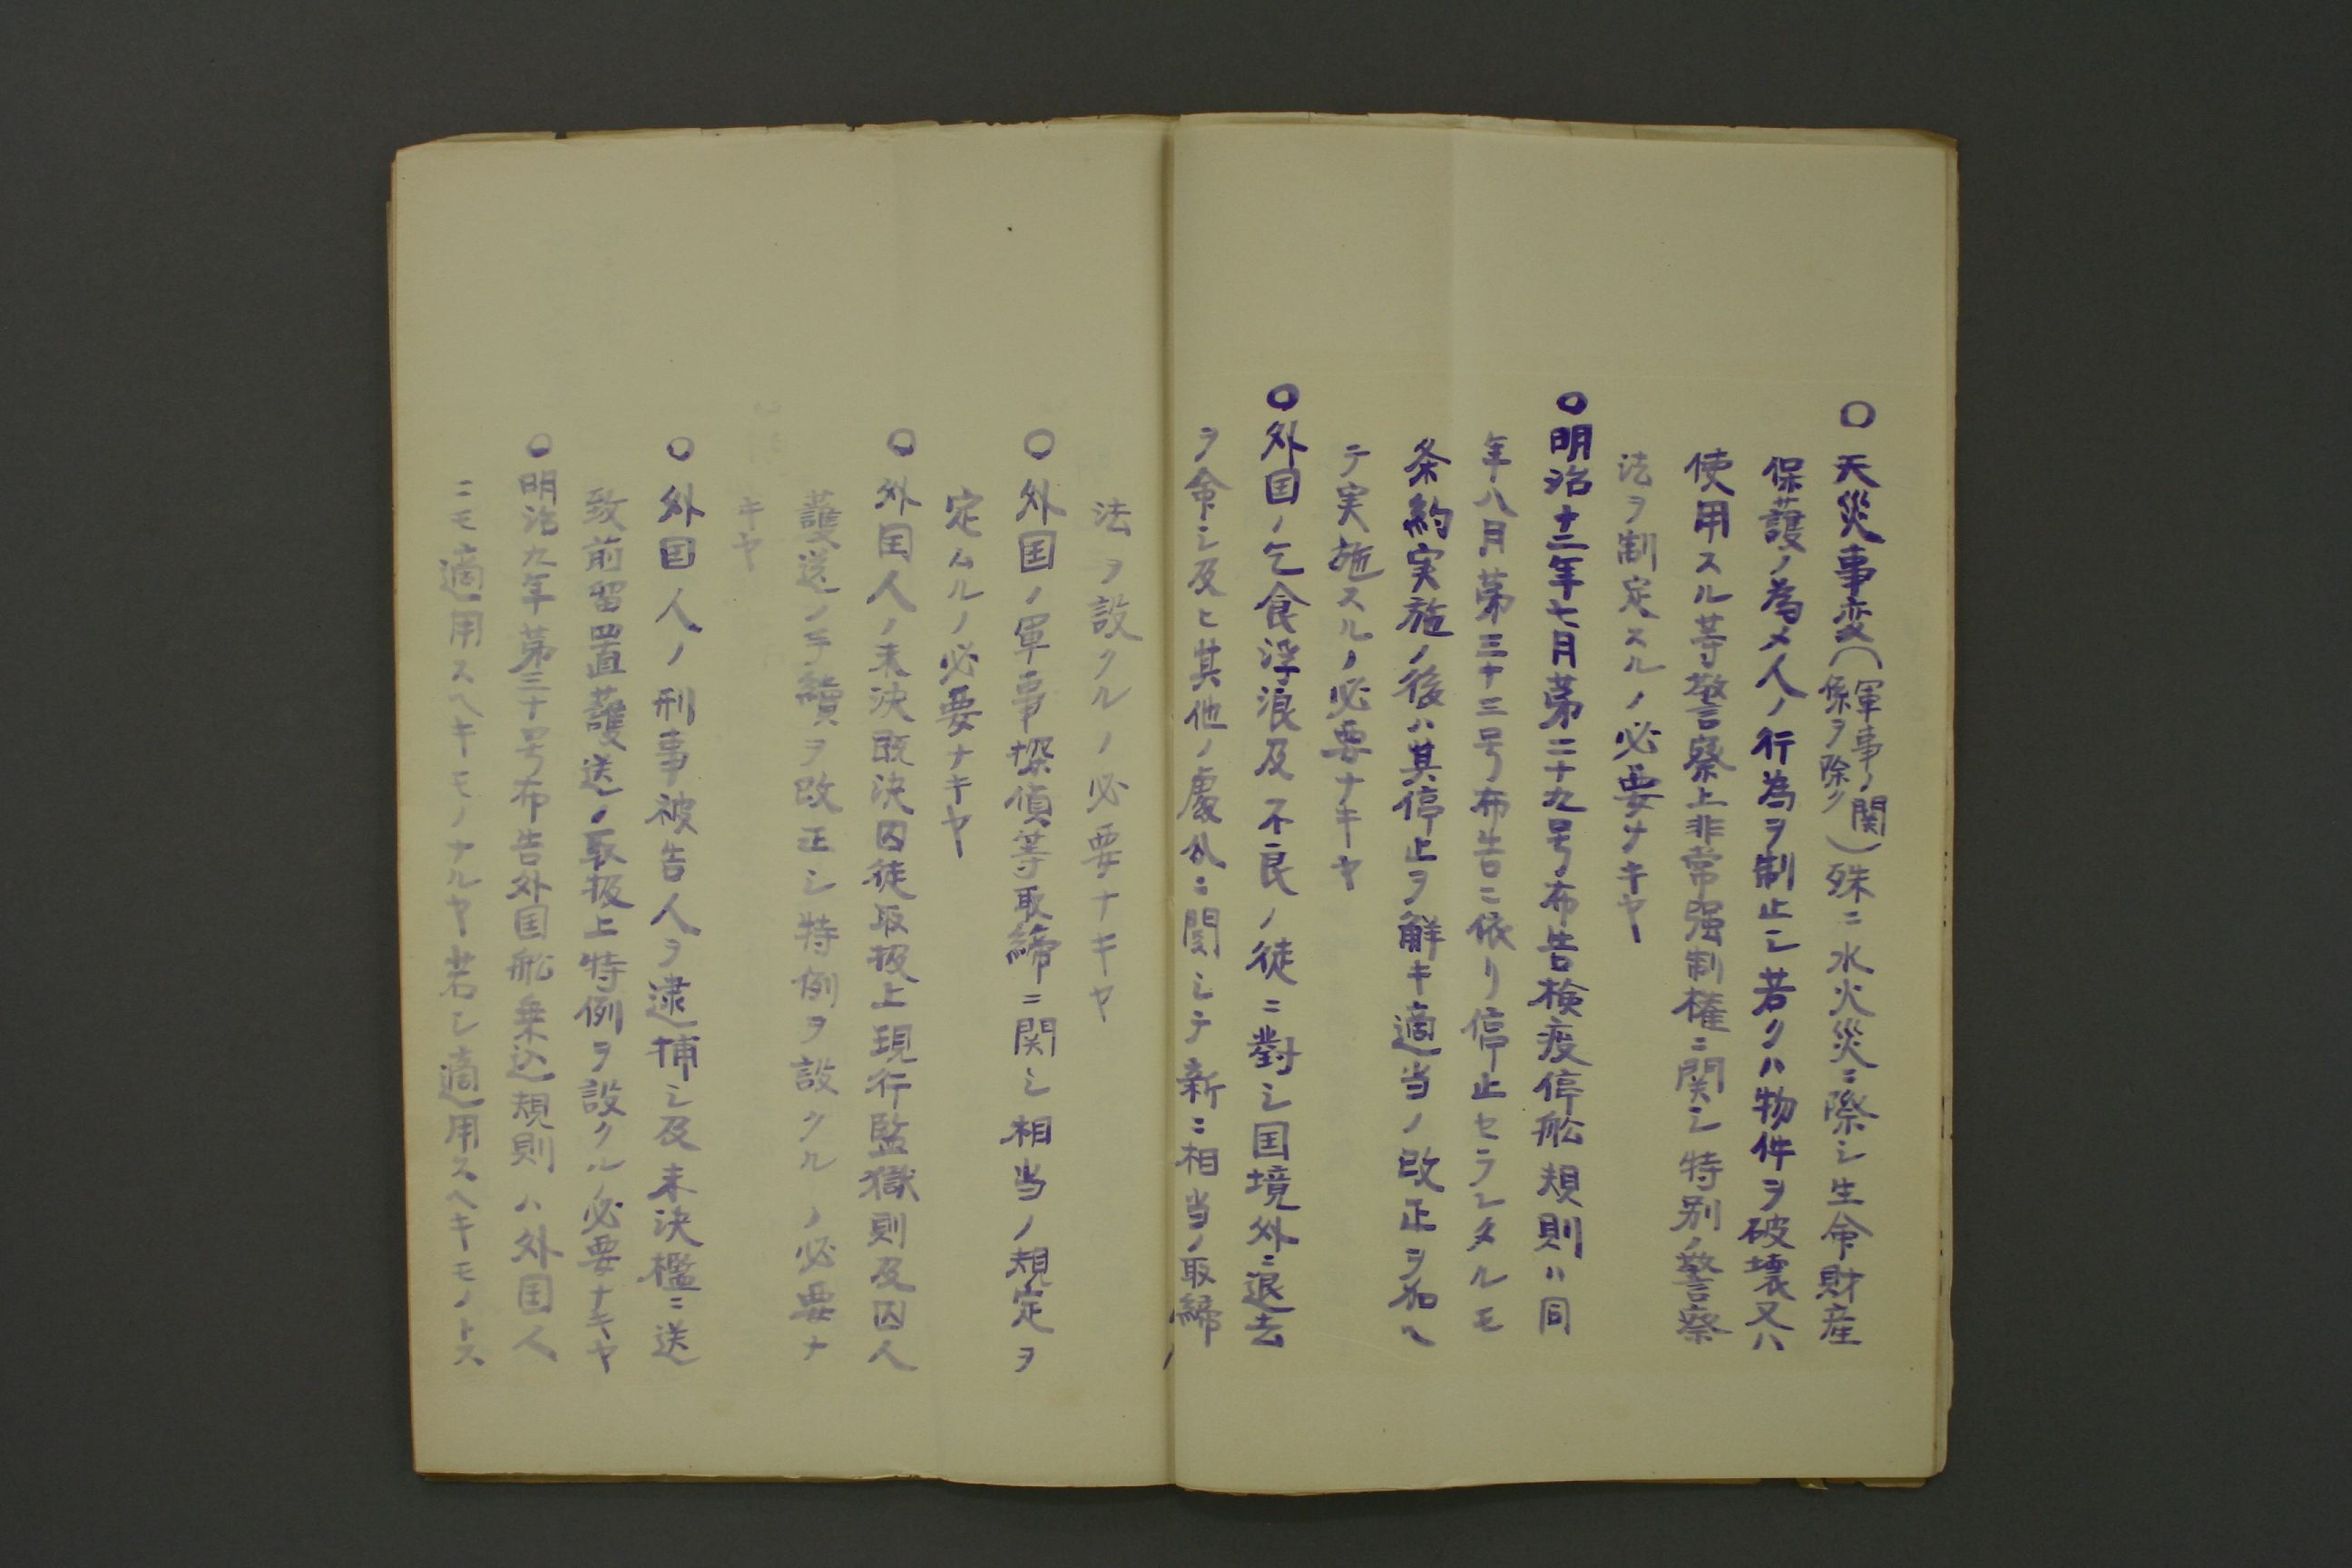 〇天災事変(軍事ノ関係ヲ除ク)殊ニ水火災ニ際シ生命財産
保護ノ為メ人ノ行為ヲ制止シ若クハ物件ヲ破壊又ハ
使用スル等警察上非常強制権ニ関シ特別ノ警察
法ヲ制定スルノ必要ナキヤ
〇明治十二年七月第二十九号布告検疫停舩規則ハ同
年八月第三十三号布告ニ依リ停止セラレタルモ
条約実施ノ後ハ其停止ヲ解キ適当ノ改正ヲ加ヘ
テ実施スルノ必要ナキヤ
〇外国ノ乞食浮浪及不良ノ徒ニ對シ国境外ニ退去
ヲ命シ及ヒ其他ノ處分ニ関シテ新ニ相当ノ取締
法ヲ設クルノ必要ナキヤ
〇外国ノ軍事探偵等取締ニ関シ相当ノ規定ヲ
定ムルノ必要ナキヤ
〇外国人ノ未決既決囚徒取扱上現行監獄則及囚人
護送ノ手續ヲ改正シ特例ヲ設クルノ必要ナ
キヤ
〇外国人ノ刑事被告人ヲ逮捕シ及未決檻ニ送
致前留置護送ノ取扱上特例ヲ設クル必要ナキヤ
〇明治九年第三十号布告外国舩乗込規則ハ外国人
ニモ適用スヘキモノナルヤ若シ適用スヘキモノトス